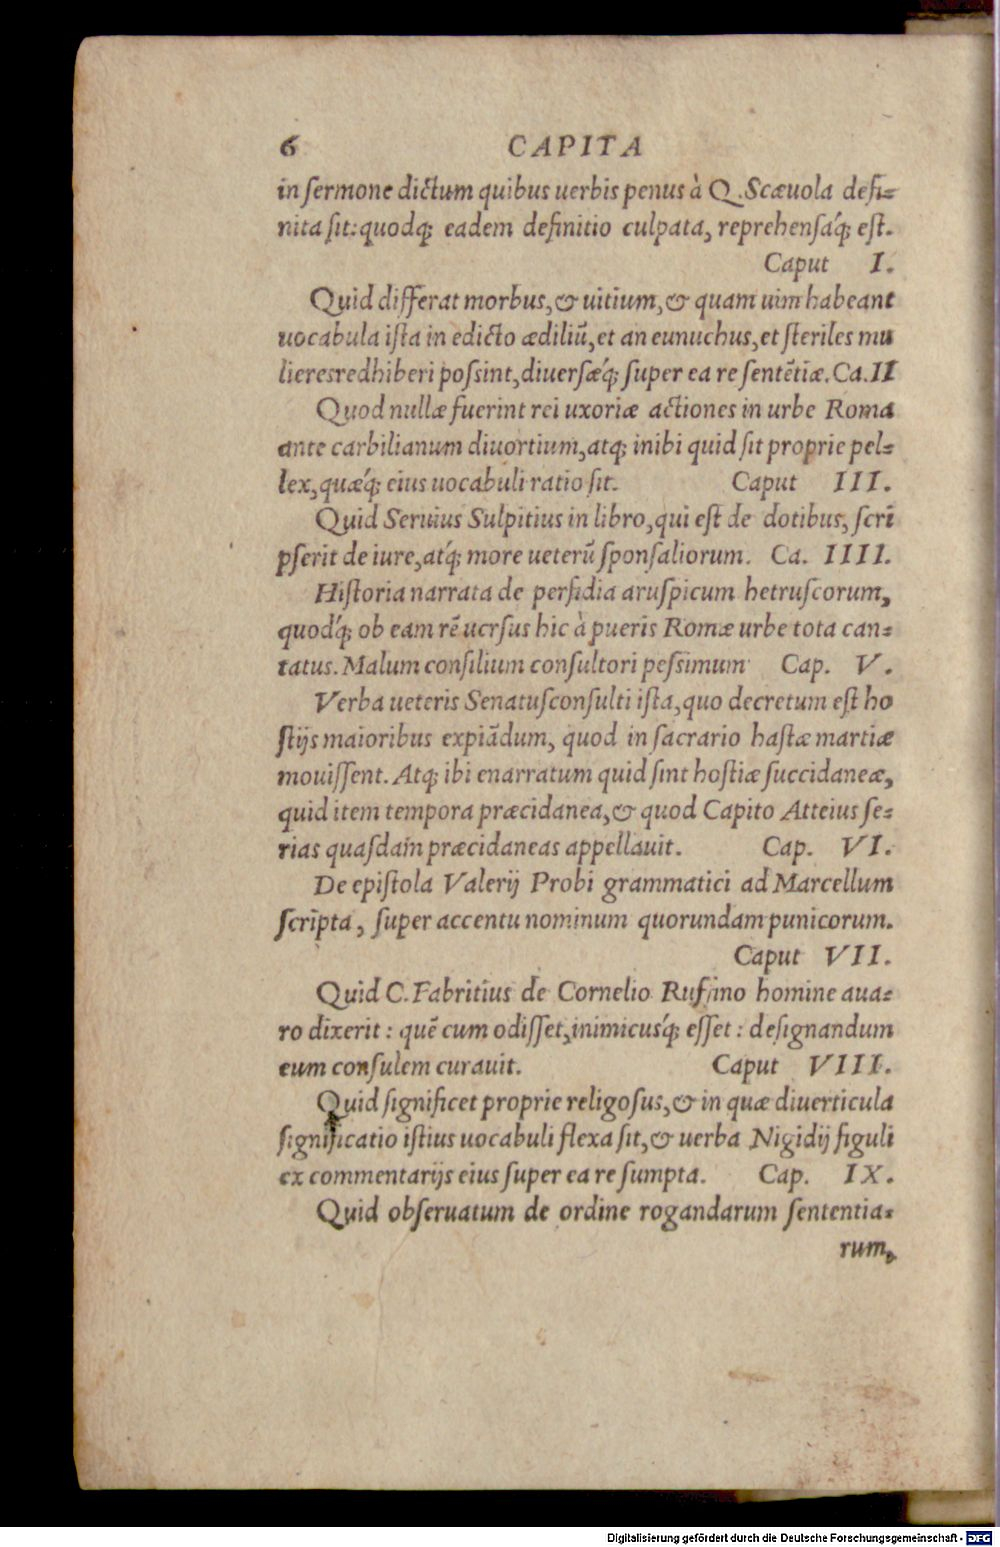 6 CAPITA
in ſermone dictum quibus uerbis penus à Q. Scæuola defi-
nita ſit: quodq; eadem definitio culpata, reprehenſáq; eſt.
Caput I.
Quid differat morbus, & uitium, & quam uim habeant
uocabula iſta in edicto ædiliū, et an eunuchus, et ſteriles mu
lieres redhiberi poſsint, diuerſǽq; ſuper ea re ſentētiæ. Ca. II
Quod nullæ fuerint rei uxoriæ actiones in urbe Roma
ante carbilianum diuortium, atq; inibi quid ſit proprie pel-
lex, quǽq; eius uocabuli ratio ſit. Caput III.
Quid Seruius Sulpitius in libro, qui eſt de dotibus, ſcri
pſerit de iure, atq́; more ueterū ſponſaliorum. Ca. IIII.
Hiſtoria narrata de perfidia aruſpicum hetruſcorum,
quodq́; ob eam rē uerſus hic à pueris Romæ urbe tota can-
tatus. Malum conſilium conſultori peſsimum Cap. V.
Verba ueteris Senatuſconſulti iſta, quo decretum eſt ho
ſtijs maioribus expiādum, quod in ſacrario haſtæ martiæ
mouiſſent. Atq; ibi enarratum quid ſint hoſtiæ ſuccidaneæ,
quid item tempora præcidanea, & quod Capito Atteius fe-
rias quaſdam præcidaneas appellauit. Cap. VI.
De epiſtola Valerij Probi grammatici ad Marcellum
ſcripta, ſuper accentu nominum quorundam punicorum.
Caput VII.
Quid C. Fabritius de Cornelio Ruffino homine aua-
ro dixerit: quē cum odiſſet, inimicusq́; eſſet: deſignandum
eum conſulem curauit. Caput VIII.
Quid ſignificet proprie religoſus, & in quæ diuerticula
ſignificatio iſtius uocabuli flexa ſit, & uerba Nigidij figuli
ex commentarijs eius ſuper ea re ſumpta. Cap. IX.
Quid obſeruatum de ordine rogandarum ſententia-
rum,
Digitalisierung gefördert durch die Deutsche Forschungsgemeinschaft - DFG